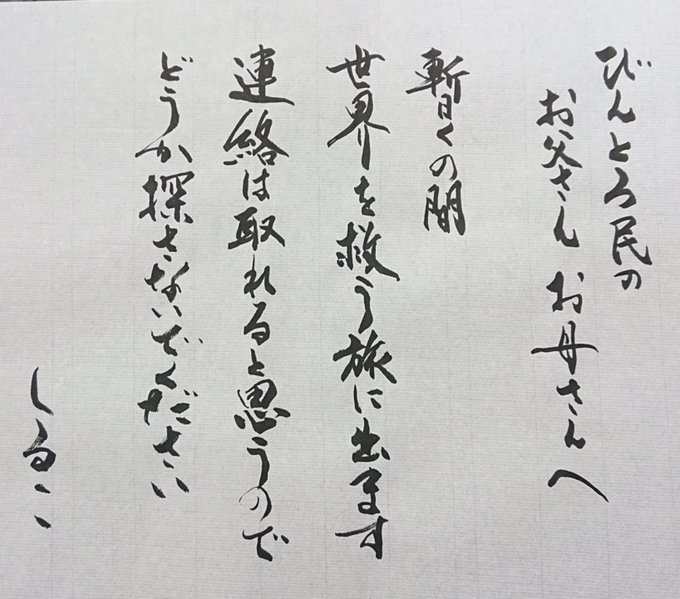 びんとろ民の
お父さん お母さんへ
暫くの間
世界を救う旅に出ます
連絡は取れると思うので
どうか探さないでください
しるこ